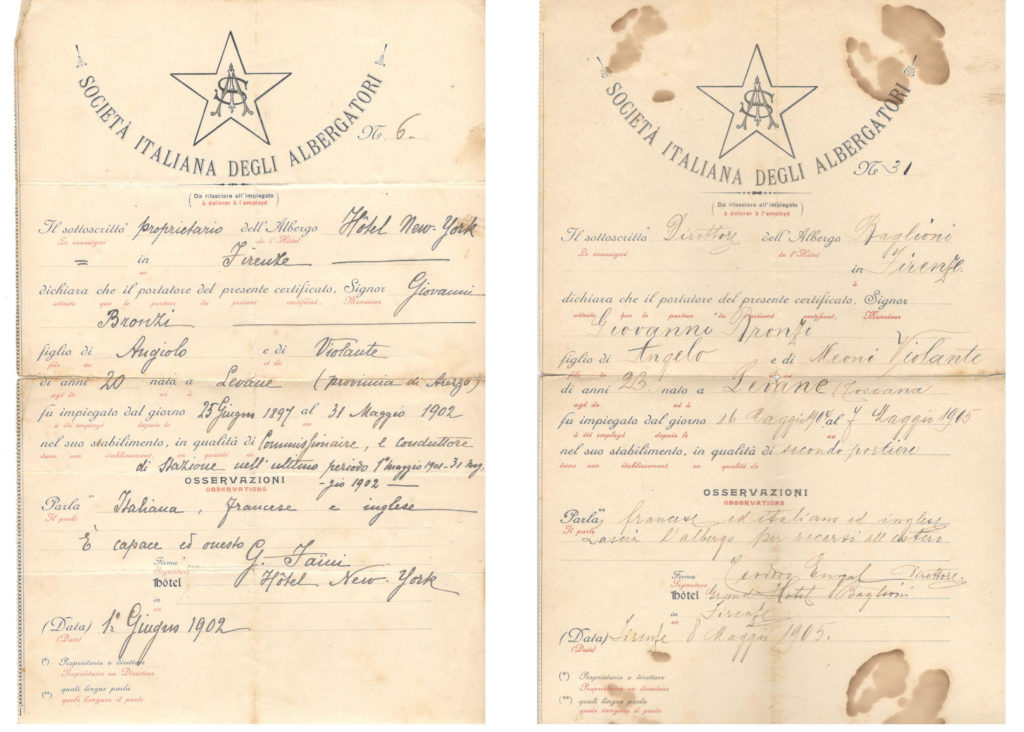 SOCIETÀ ITALIANA DEGLI ALBERGATORI
SA
No 6.
(Da rilasciare all'impiegato
à delivrer à l'employé)
Il sottoscritto* proprietario dell'Albergo Hôtel New-York
Le soussigné de l'Hôtel
= in Firenze
en
dichiara che il portatore del presente certificato, Signor Giovanni
atteste que le porteur du présent certificat, Monsieur
Bronzi
figlio di Angiolo e di Violante
fils de et de
di anni 20 nato a Levane (provincia di Arezzo)
agé de né à
fu impiegato dal giorno 25 Giugno 1897 al 31 Maggio 1902
à été employé depuis le au
nel suo stabilimento, in qualità di Commissionaire, e conduttore
dans son établissement, en qualité de
di Stazione nell'ultimo periodo 1° Maggio 1901-31 Mag-
OSSERVAZIONI
-gio 1902
OBSERVATIONS
Parla** Italiana, francese e inglese
Il parle
È capace ed onesto
Firma G.
Signature
Hôtel Hôtel New-York
in
en
(Data) 1° Giugno 1902
(Date)
(*) Proprietario o direttore
Propriétaire ou Directeur
(**) quali lingue parla
quels langues il parle
SOCIETÀ ITALIANA DEGLI ALBERGATORI
SA
No 31
(Da rilasciare all'impiegato
à delivrer à l'employé)
Il sottoscritto* Direttore dell'Albergo Baglioni
Le soussigné de l'Hôtel
in Firenze
à
dichiara che il portatore del presente certificato, Signor
atteste que le porteur du présent certificat, Monsieur
Giovanni Bronzi
figlio di Angelo e di Meoni Violante
fils de et de
di anni 23 nato a Levane (Toscana
agé de né à
fu impiegato dal giorno 16 Maggio 904 al 7 Maggio 1905
à été employé depuis le au
nel suo stabilimento, in qualità di secondo portiere
dans son établissement en qualité de
OSSERVAZIONI
OBSERVATIONS
Parla** francese ed italiano ed inglese
Il parle
Lascia l'albergo per recarsi all'estero
Firma Direttore.
Signature
Hôtel Grand Hotel Baglioni
in Firenze
en
(Data) Firenze 8 Maggio 1905.
(Date)
(*) Proprietario o direttore
Propriétaire ou directeur
(**) quali lingue parla
quels langues il parle